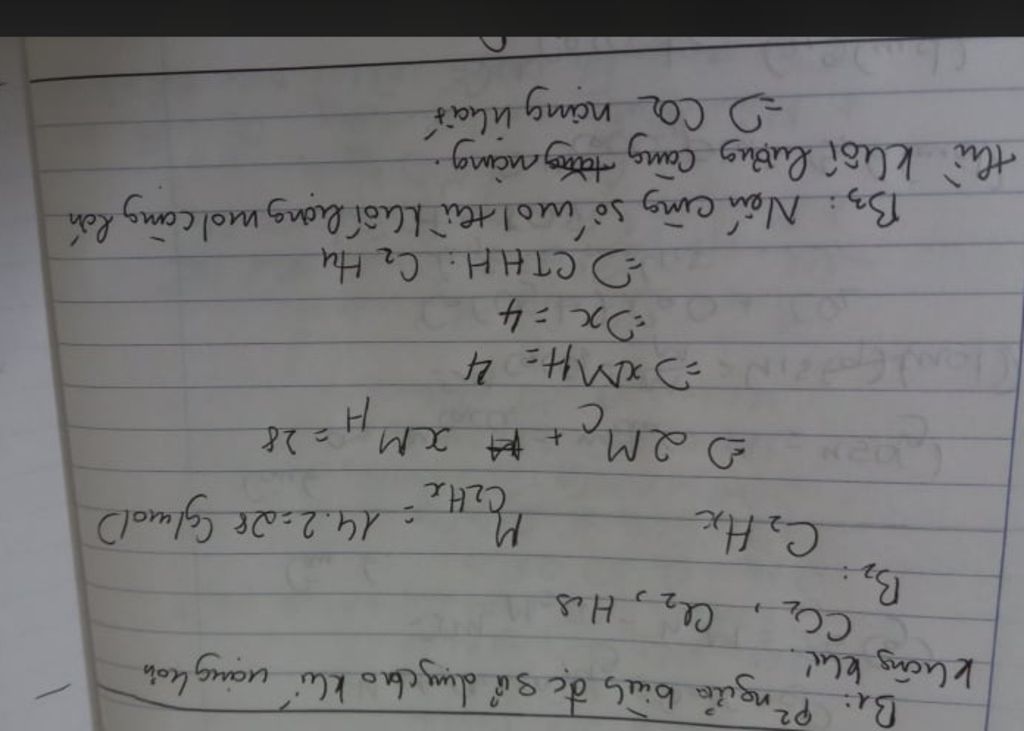 B1: P² ngửa bình đc sử dụng cho khí nặng hơn
không khí.
CO2, Cl2, H2S
B2:
C2Hx M C2Hx = 14.2=28 (g/mol)
=> 2M C + xM H = 28
=> xMH = 4
=> x = 4
=> CTHH: C2H4
B3: Nếu cùng số mol thì khối lượng mol càng lớn
thì khối lượng càng nặng.
=> CO2 nặng nhất